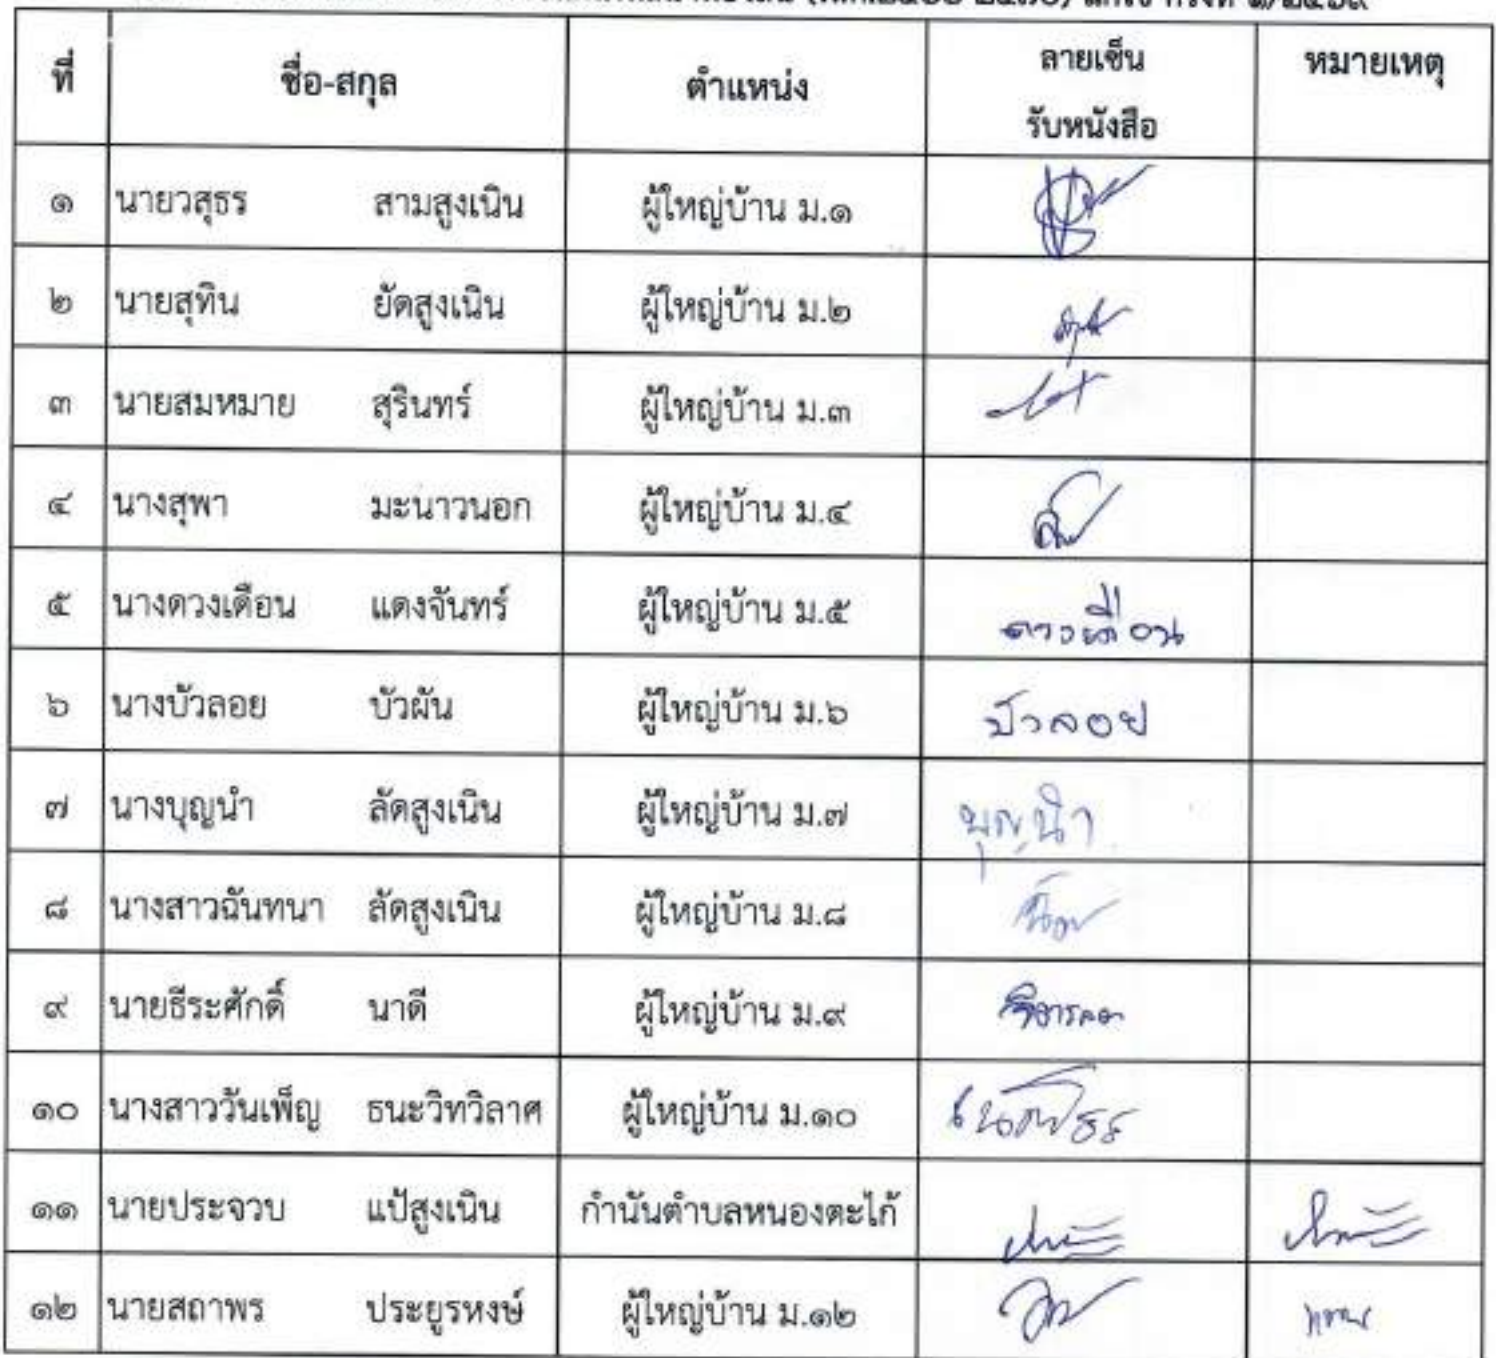 ที่ ชื่อ-สกุล ตำแหน่ง ลายเซ็น หมายเหตุ
รับหนังสือ
๑ นายวสุธร สามสูงเนิน ผู้ใหญ่บ้าน ม.๑
๒ นายสุทิน ยัดสูงเนิน ผู้ใหญ่บ้าน ม.๒
๓ นายสมหมาย สุรินทร์ ผู้ใหญ่บ้าน ม.๓
๔ นางสุพา มะนาวนอก ผู้ใหญ่บ้าน ม.๔
๕ นางดวงเดือน แดงจันทร์ ผู้ใหญ่บ้าน ม.๕ ดวงเดือน
๖ นางบัวลอย บัวผัน ผู้ใหญ่บ้าน ม.๖ บัวลอย
๗ นางบุญนำ ลัดสูงเนิน ผู้ใหญ่บ้าน ม.๗ บุญนำ
๘ นางสาวฉันทนา ลัดสูงเนิน ผู้ใหญ่บ้าน ม.๘
๙ นายธีระศักดิ์ นาดี ผู้ใหญ่บ้าน ม.๙
๑๐ นางสาววันเพ็ญ ธนะวิทวิลาศ ผู้ใหญ่บ้าน ม.๑๐
๑๑ นายประจวบ แป้สูงเนิน กำนันตำบลหนองตะไก้
๑๒ นายสถาพร ประยูรหงษ์ ผู้ใหญ่บ้าน ม.๑๒